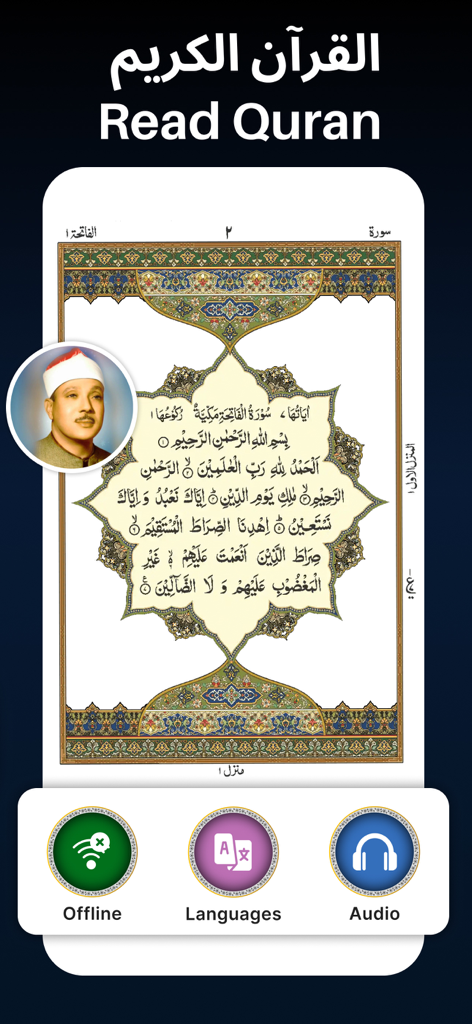 القرآن الكريم
Read Quran
سورة ٢ الفاتحة ١
اٰيَاتُهَا ٧ سُوْرَةُ الْفَاتِحَةِ مَكِّيَّةٌ رُكُوْعُهَا ١
بِسْمِ اللّٰهِ الرَّحْمٰنِ الرَّحِيْمِ ١
اَلْحَمْدُ لِلّٰهِ رَبِّ الْعٰلَمِيْنَ ۙ الرَّحْمٰنِ
الرَّحِيْمِ ۙ مٰلِكِ يَوْمِ الدِّيْنِ ؕ اِيَّاكَ نَعْبُدُ وَ اِيَّاكَ
نَسْتَعِيْنُ ؕ اِهْدِنَا الصِّرَاطَ الْمُسْتَقِيْمَ ۙ
صِرَاطَ الَّذِيْنَ اَنْعَمْتَ عَلَيْهِمْ ۙ غَيْرِ
الْمَغْضُوْبِ عَلَيْهِمْ وَ لَا الضَّآلِّيْنَ
المنزل الاول ١
منزل ١
Offline Languages Audio